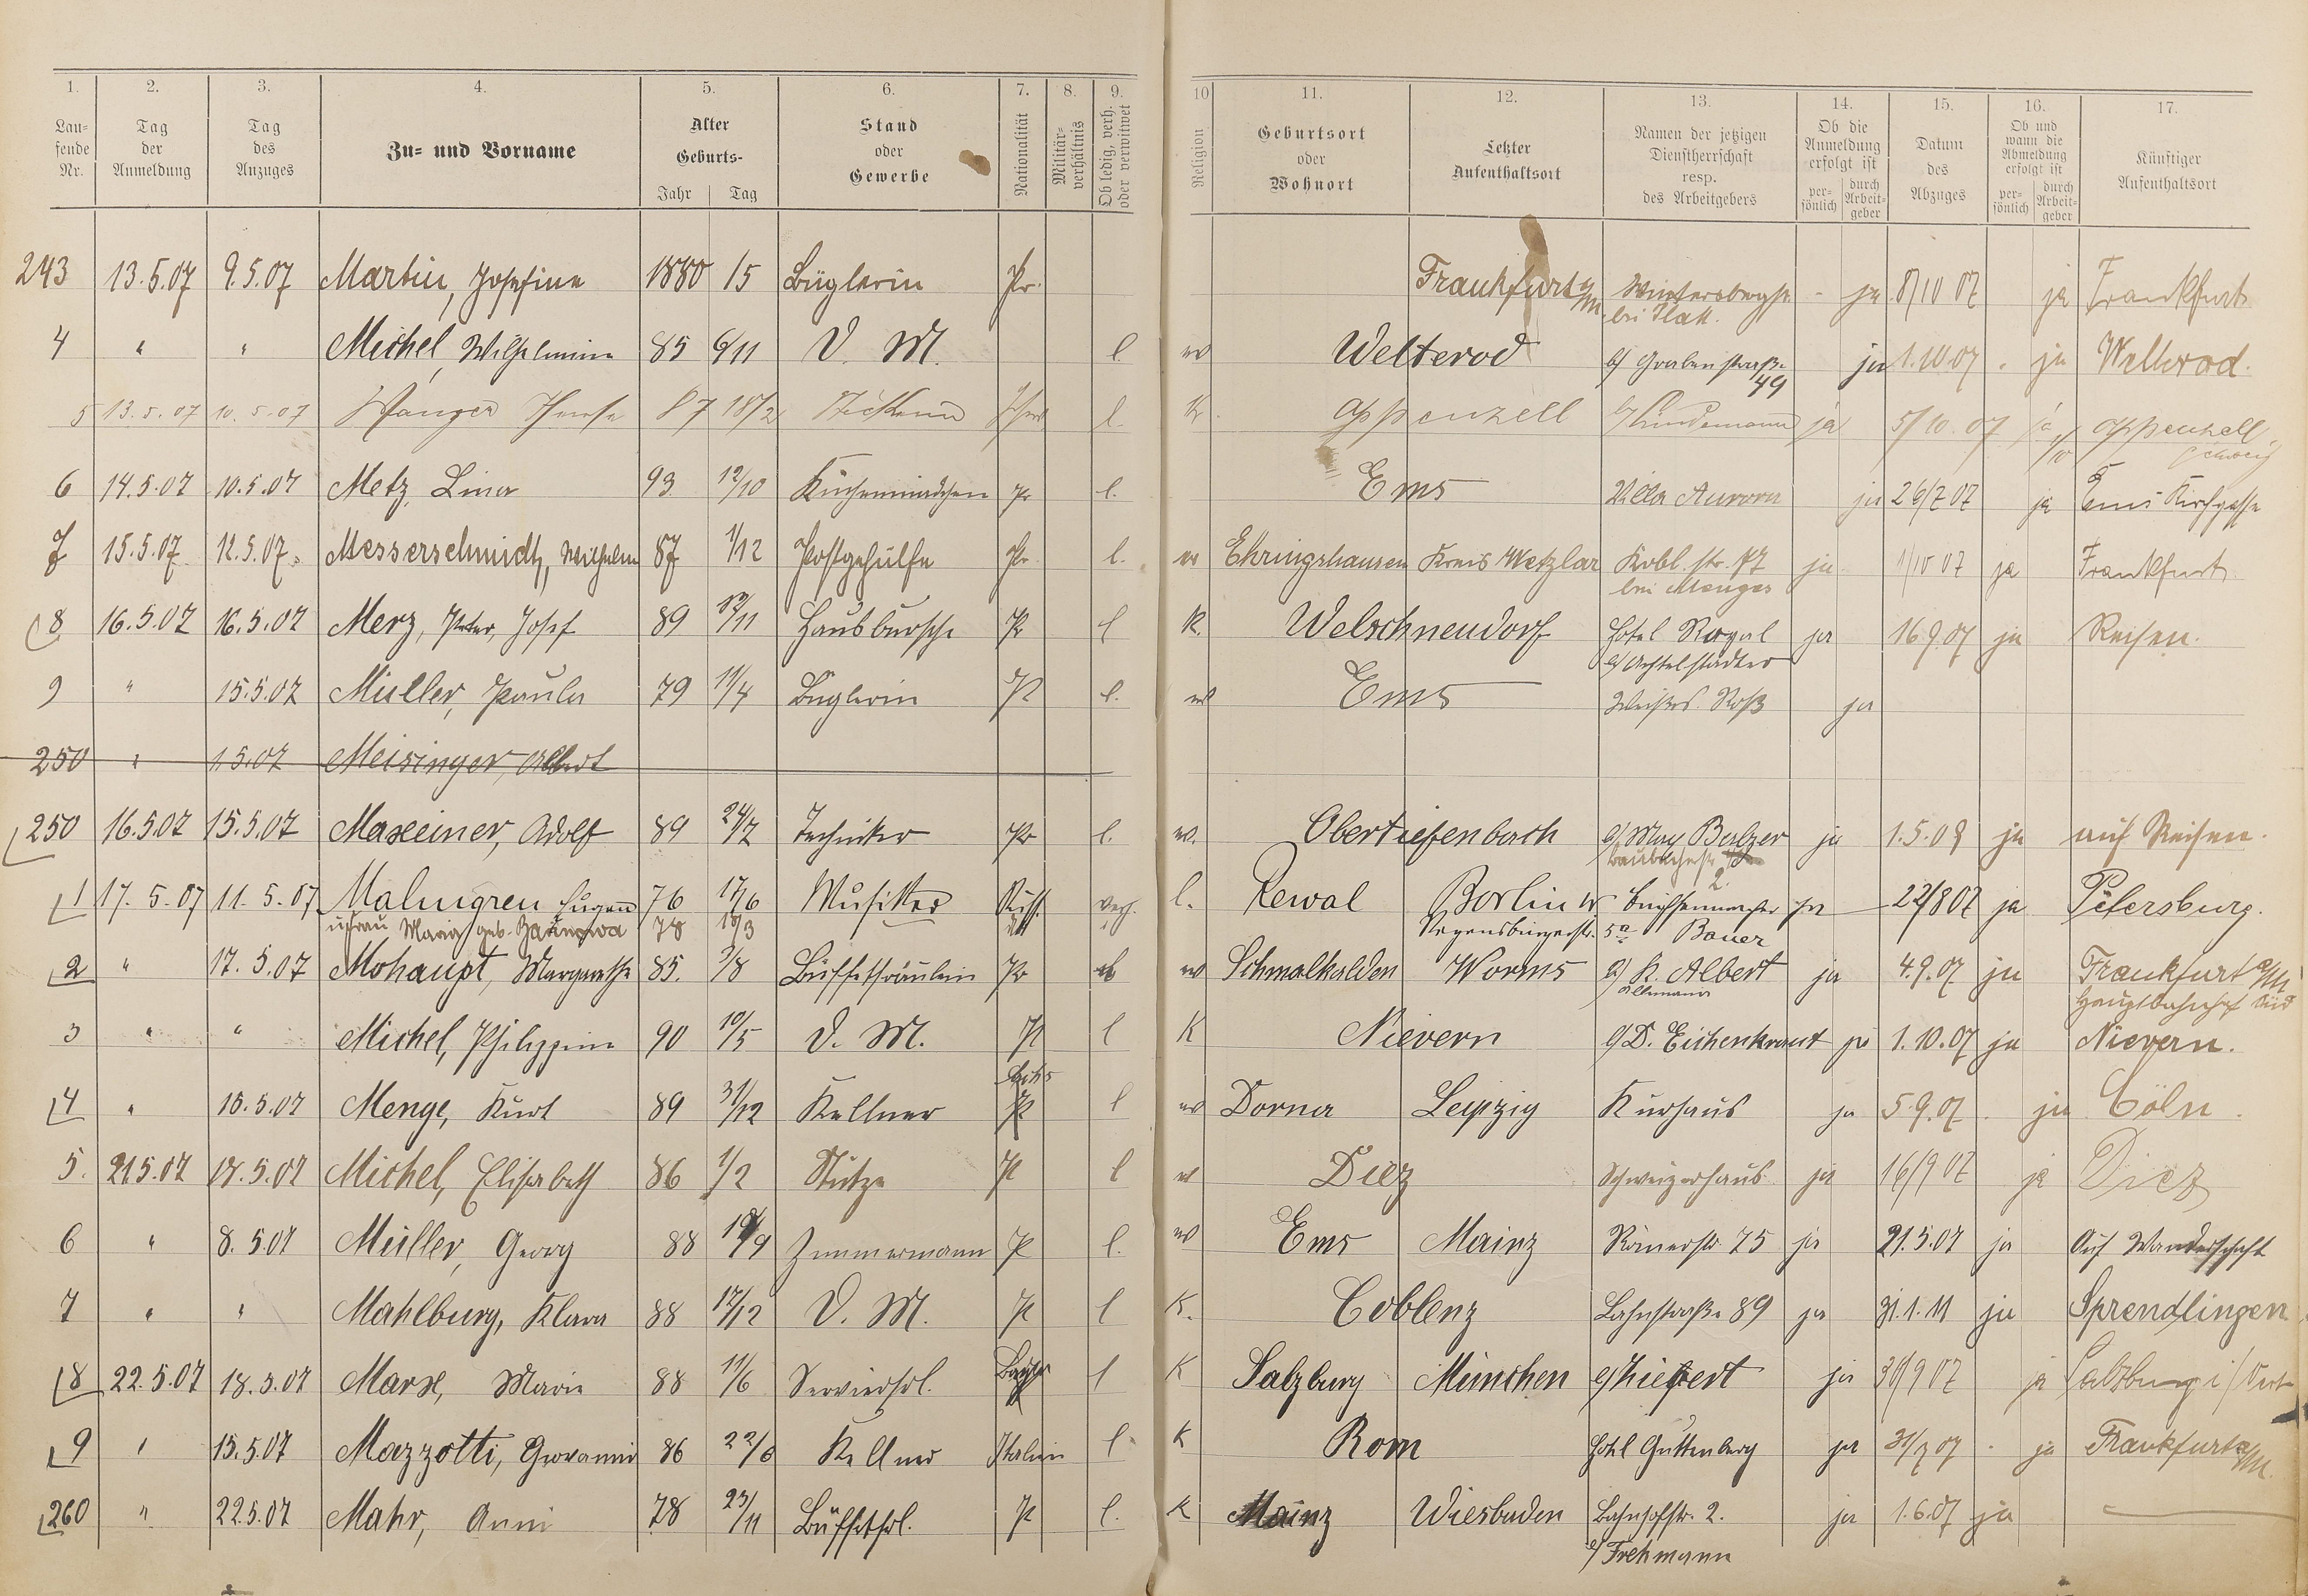 1. 2. 3. 4. 5. 6. 7. 8. 9. 10 11. 12. 13. 14. 15. 16. 17.
Lau-
fende
Nr.
Tag
der
Anmeldung
Tag
des
Anzuges
Zu- und Vorname
Alter
Geburts-
Jahr Tag
Stand
oder
Gewerbe
Nationalität
Militär-
verhältnis
Ob ledig, verh.
oder verwitwet
Religion
Geburtsort
oder
Wohnort
Letzter
Aufenthaltsort
Namen der jetzigen
Dienstherrschaft
resp.
des Arbeitgebers
Ob die
Anmeldung
erfolgt ist
per-
sönlich
durch
Arbeit-
geber
Datum
des
Abzuges
Ob und
wann die
Abmeldung
erfolgt ist
per-
sönlich
durch
Arbeit-
geber
Künftiger
Aufenthaltsort
243 13.5.07 9.5.07 Martin, Josefine 1880 15 Büglerin Pr. Frankfurt a/M - ja 8/10 07 ja Frankfurt
4 " " Michel, Wilhelmine 85 6/11 D. M. l w Welterod b/ Grabenstraße ja 1.10.07 . ja Welterod.
49
5 13.5.07 10.5.07 87 18/2 l. K. Appenzell b/ Lindemann ja 5/10 07 ja Appenzell
Schweiz
6 14.5.07 10.5.07 Metz, Lina 93 12/10 Küchenmädchen Pr l. Ems Villa Aurora ja 26/7 07 ja Ems Kirchgasse
7 15.5.07 12.5.07. Messerschmidt, Wilhelm 87 1/12 Postgehülfe Pr. l. w Ehringshausen Kreis Wetzlar Kobl. str. 77 ja 1/10 07 ja Frankfurt
bei Menges
8 16.5.07 16.5.07 Merz, Peter, Josef 89 12/11 Hausbursche Pr l K. Welschneudorf Hotel Royal ja 16 9.07 ja Reisen.
b/ Achtelstädter
9 " 15.5.07 Müller, Paula 79 11/4 Büglerin Pr l. w Ems Weißes Roß ja
250 " 15.07 Meisinger, Albert
250 16.5.07 15.5.07 Maxeiner, Adolf 89 24/7 Techniker Pr l. w. Obertiefenbach b/ May Balzer ja 1.5.08 ja auf Reisen.
1 17.5.07 11.5.07 Malmgren Eugen 76 17/6 Musiker Russ. verh. l. Rewal Berlin W ja 22/8 07 ja Petersburg.
u. Frau Maria geb. 78 18/3 Regensburgerstr. 5a Bauer
2 " 17.5.07 Mohaupt, Margarethe 85. 3/8 Büffetfräulein Pr w Schmalkalden Worms b/ K. Albert ja 4.9.07 ja Frankfurt a/M
Hauptbahnhof Süd
3 " " Michel, Philippine 90 10/5 D. M. Pr l K Nievern b/ D. Eichenkraut ja 1.10.07 ja Nievern.
4 " 15.5.07 Menge, Kurt 89 31/12 Kellner l w Dorna Leipzig Kurhaus ja 5.9.07 . ja Cöln.
5. 21.5.07 17.5.07 Michel, Elisabeth 86 1/2 Stütze Pr l w Diez Schweizerhaus ja 16/9 07 ja Diez
6 " 8.5.07 Müller, Georg 88 Zimmermann Pr l. w Ems Mainz Römerstr. 75 ja 21.5.07 ja Auf Wanderschaft
7 " " Mahlburg, Klara 88 12/12 D. M. Pr l K. Coblenz Lahnstraße 89 ja 31.1.11 ja Sprendlingen
8 22.5.07 18.5.07 Marx, Marie 88 11/6 Servierfrl. l K Salzburg München ja 30/9 07 ja Salzburg
9 " 15.5.07 Mazzotti, Giovanni 86 22/6 Kellner Italien l. K Rom Hotel Guttenberg ja 31/7 07 . ja Frankfurt a/M.
260 " 22.5.07 Mahr, Anni 78 23/11 Büffetfrl. Pr l. K Mainz Wiesbaden Bahnhofstr. 2. ja 1.6.07 ja —
b/ Frehmann